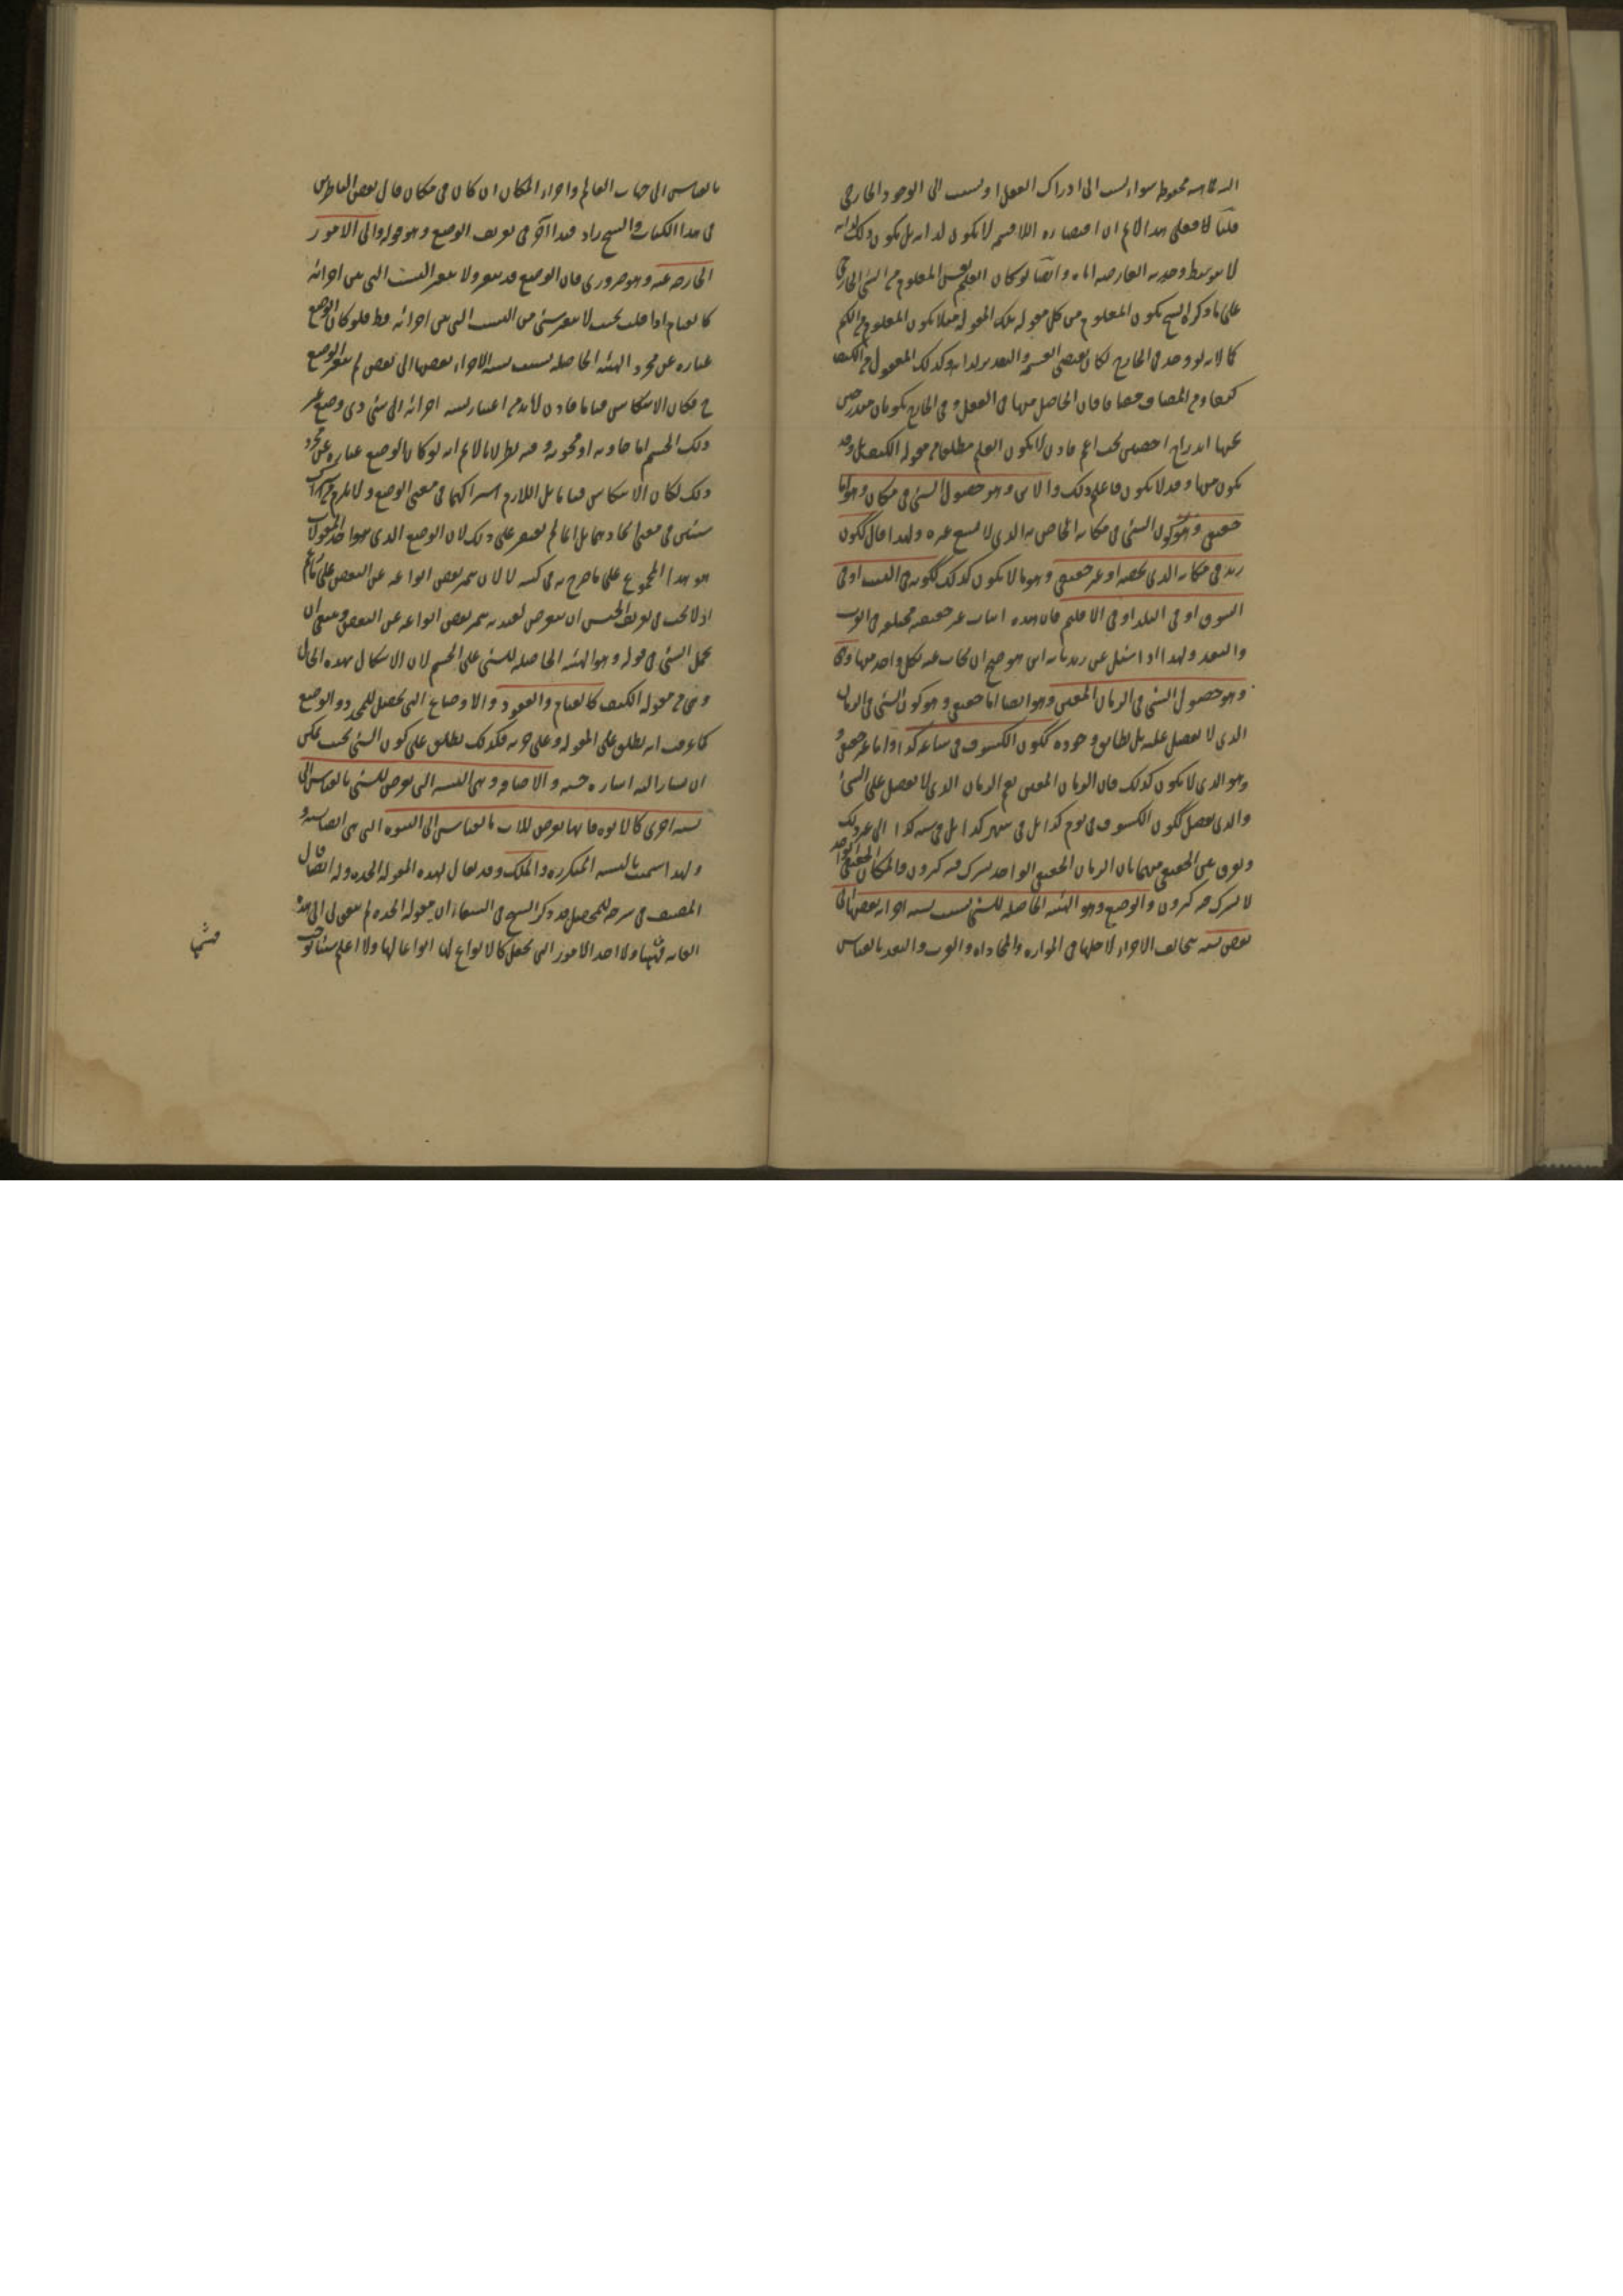 الذاتية محفوظة سواء نسبت الى ادراك العقل او نسبت الى الوجود الخارجي
قلنا لا فعلى هذا لانم ان اقتضاءه اللاقسمة لا يكون لذاته بل يكون ذلك لذاته
لا بتوسط وحدته العارضة اياه وايضا لو كان العلم نفس المعلوم من الشئ الخارجي
على ما ذكره الشيخ يكون المعلوم من كل مقولة تلك المقولة مثلا يكون المعلوم من الكم
كما لانه لو وجد في الخارج لكان يقتضي القسمة والتقدير لذاته وكذلك المعقول من الكيف
كيفا ومن المضاف مضافا فان الحاصل منها في العقل وفي الخارج يكونان مندرجين
تحتها اندراج اخصين تحت اعم فاذن لا يكون العلم مطلقا من مقولة الكيف بل وقد
يكون منها وقد لا يكون فاعلم ذلك والاين وهو حصول الشئ في مكان وهو اما
حقيقي وهو كون الشئ في مكانه الخاص به الذي لا يسع غيره ولهذا قال ككون
زيد في مكانه الذي يخصه او غير حقيقي وهو ما لا يكون كذلك ككونه في البيت او في
السوق او في البلد او في الاقليم فان هذه ايناب غير حقيقية مختلفة في القرب
والبعد ولهذا اذا سئل عن زيد بانه اين هو صح ان يجاب عنه بكل واحد منها ومتى
وهو حصول الشئ في الزمان المعين وهو ايضا اما حقيقي وهو كون الشئ في الزمان
الذي لا يفصل عليه بل يطابق وجوده ككون الكسوف في ساعة كذا واما غير حقيقي
وهو الذي لا يكون كذلك فان الزمان المعين يعم الزمان الذي لا يفصل على الشئ
والذي يفصل ككون الكسوف في يوم كذا بل في شهر كذا بل في سنة كذا الى غير ذلك
ويفرق بين الحقيقي منهما بان الزمان الحقيقي الواحد يشترك فيه كثيرون والمكان الحقيقي الواحد
لا يشترك فيه كثيرون والوضع وهو الهيئة الحاصلة للشئ بسبب نسبة اجزائه بعضها الى
بعض نسبة تتخالف الاجزاء لاجلها في الموازاة والمحاذاة والقرب والبعد بالقياس
بالقياس الى جهات العالم واجزاء المكان ان كان في مكان قال بعض الناظرين
في هذا الكتاب والشيخ زاد قيدا آخر في تعريف الوضع وهو قوله والى الامور
الخارجة عنه وهو ضروري فان الوضع قد يتغير ولا يتغير النسب التي بين اجزائه
كالقيام اذا قلب بحيث لا يتغير شئ من النسب التي بين اجزائه قط فلو كان الوضع
عبارة عن مجرد الهيئة الحاصلة بسبب نسبة الاجزاء بعضها الى بعض لم يتغير الوضع
ح فكان الانتكاس قياما فاذن لابد من اعتبار نسبة اجزائه الى شئ ذي وضع غير
ذلك الجسم اما حاويه او محويه وفيه نظر لانا لانم انه لو كان الوضع عبارة عن مجرد
ذلك لكان الانتكاس قياما بل اللازم اشتراكهما في معنى الوضع ولا يلزم من اشتراك
شيئين في معنى اتحادهما بل انما لم يقتصر على ذلك لان الوضع الذي هو احد المقولات
هو هذا المجموع على ما صرح به في كتبه لا لان يميز بعض انواعه عن البعض على ما زعم
اذ لا يجب في تعريف الجنس ان يتعرض لقيد به يميز بعض انواعه عن البعض وينبغي ان
يحمل الشئ في قوله وهو الهيئة الحاصلة للشئ على الجسم لان الاشكال بهذه الحال
وهي من مقولة الكيف كالقيام والقعود والاوضاع التي تحصل للمحدد والوضع
كما عرفت انه يطلق على المقولة وعلى جزئه فكذلك يطلق على كون الشئ بحيث يمكن
ان يشار اليه اشارة حسية والاضافة وهي النسبة التي تعرض للشئ بالقياس الى
نسبة اخرى كالابوة فانها تعرض للاب بالقياس الى البنوة التي هي ايضا نسبة
ولهذا سميت بالنسبة المتكررة والملك وقد يقال لهذه المقولة الجدة وله ايضا قال
المصنف في شرحه للملخص قد ذكر الشيخ في الشفاء ان مقولة الجدة لم يتفق لي الى هذه
الغاية فهمها ولا احد الامور التي تجعل كالانواع لها انواعا لها ولا اعلم شيئا يوجب